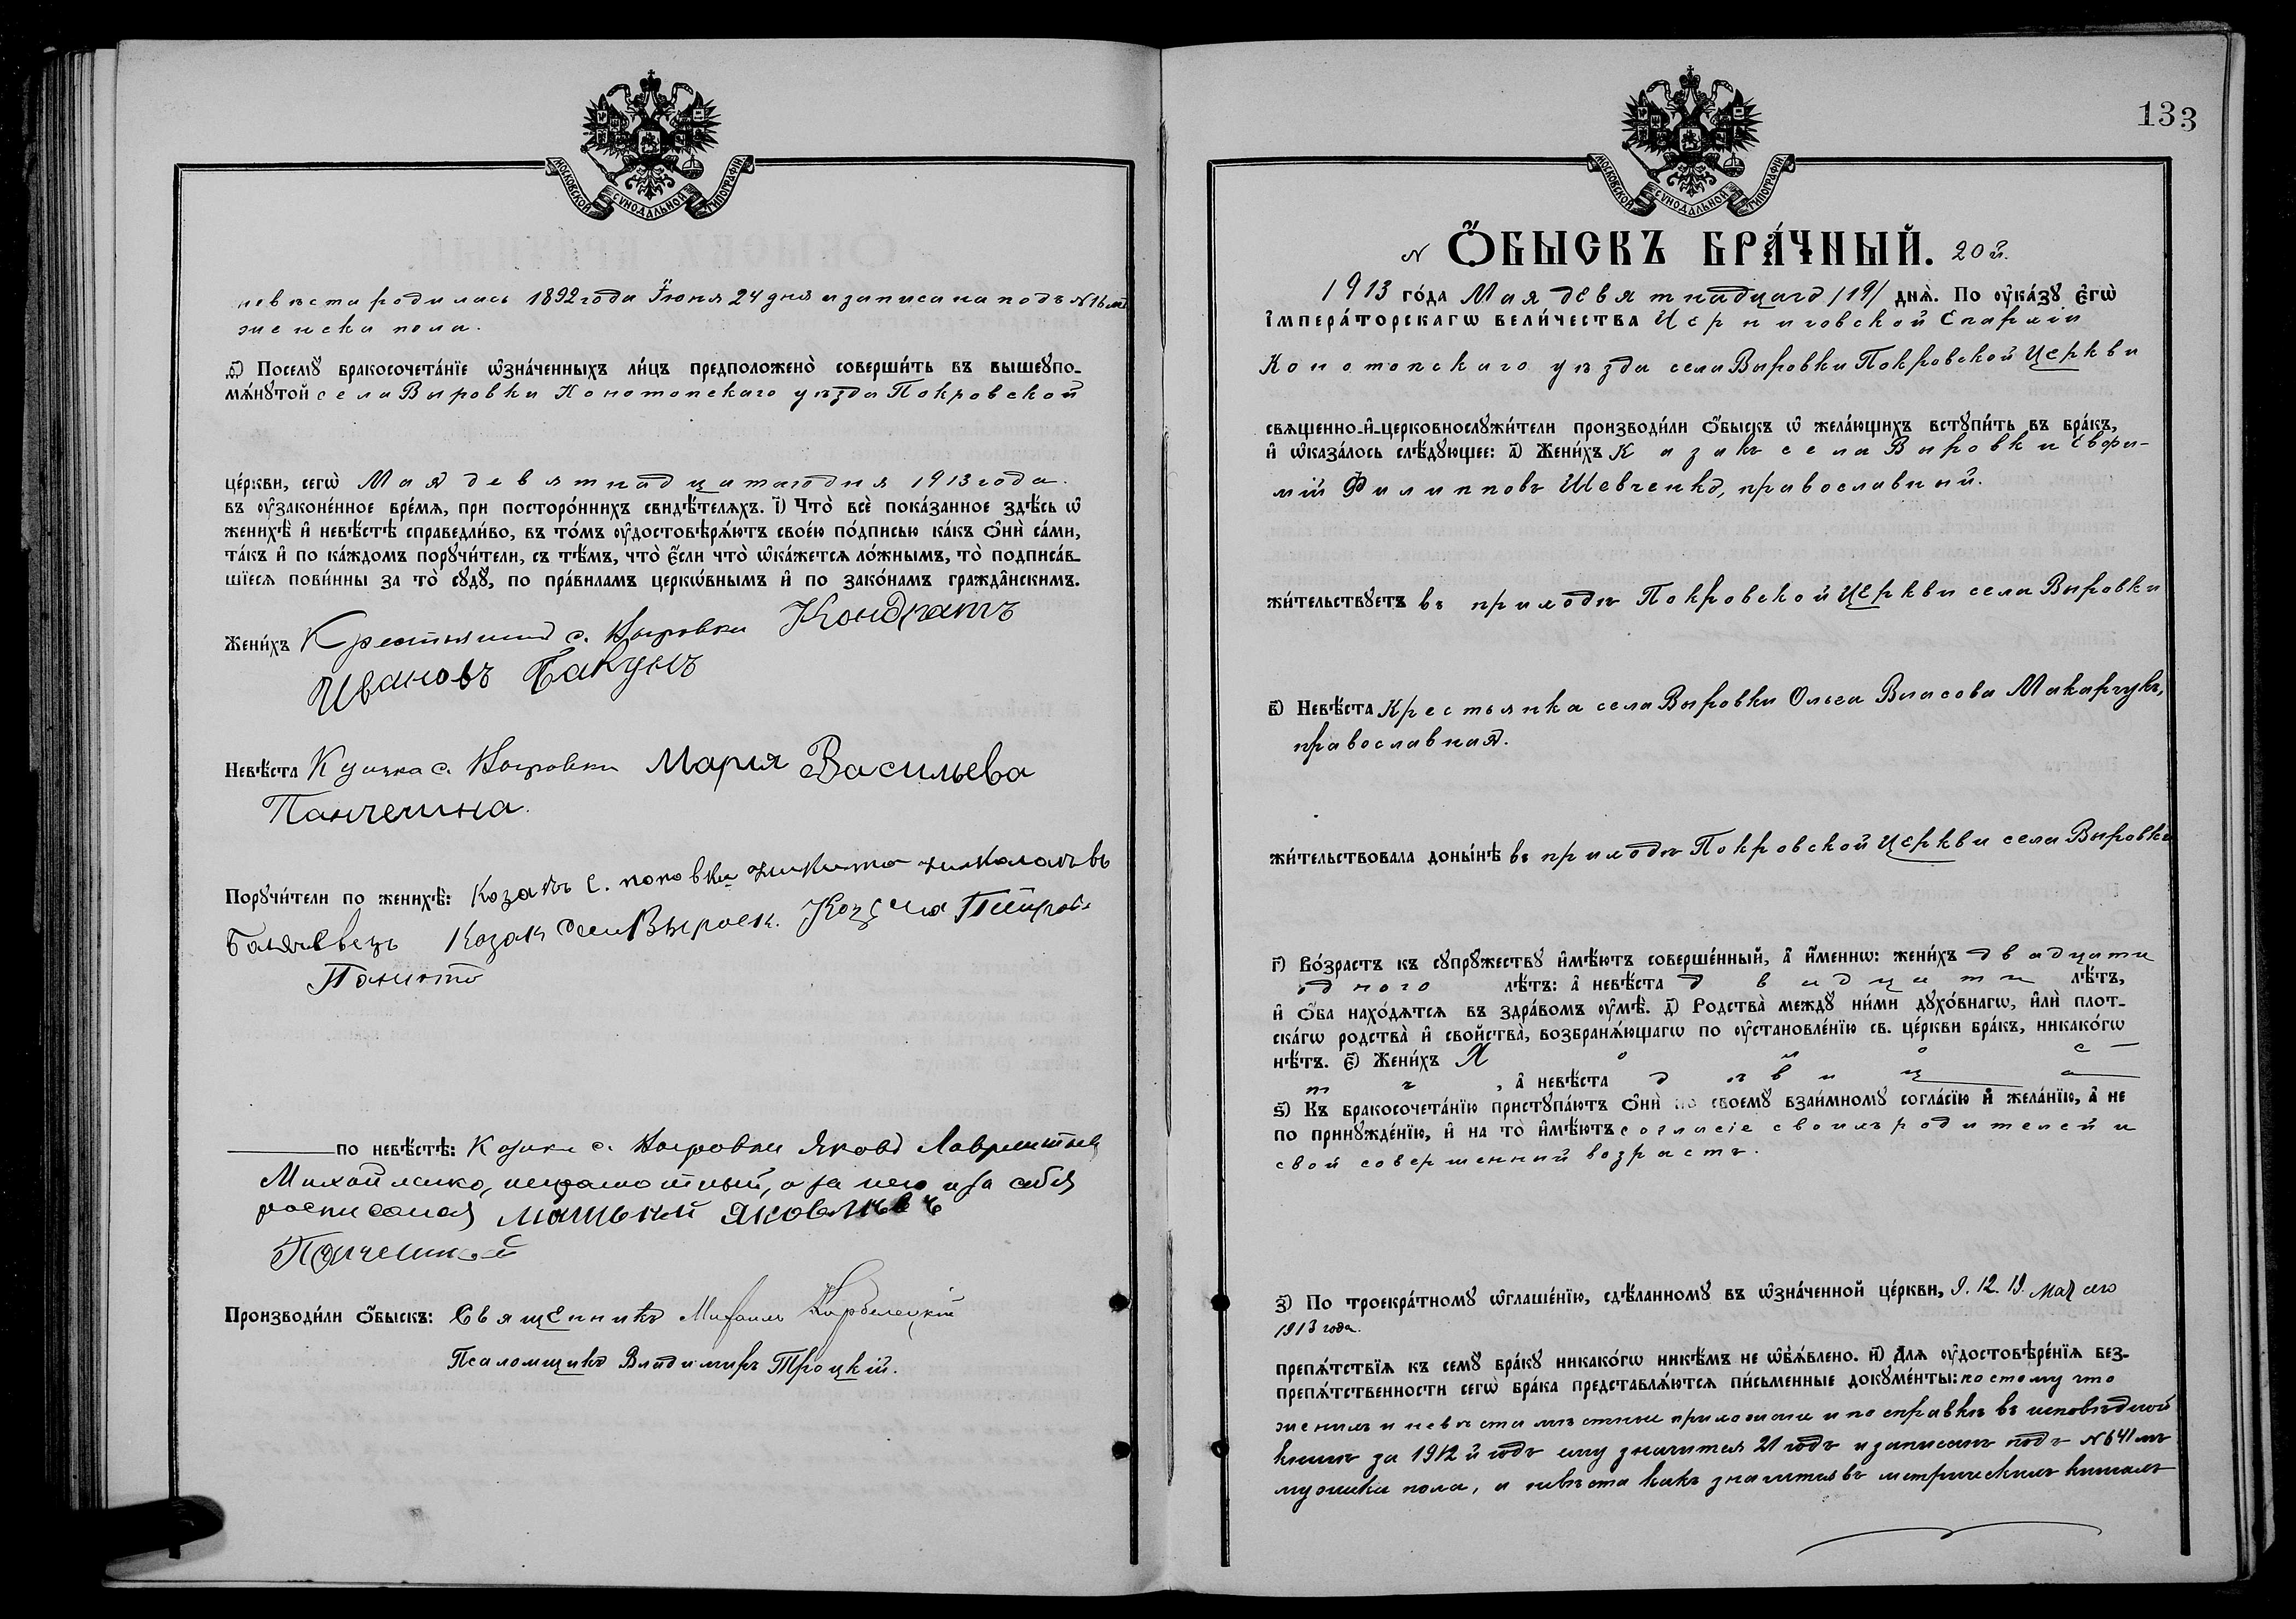 МОСКОВСКОЙ СѴНОДАЛЬНОЙ ТИПОГРАФІИ
невѣста родилась 1892 года Іюня 24 дня и записана подъ №16 мъ
женска пола.
д҃) Посемꙋ бракосочета́нїе ѡ҆зна́ченныхъ ли́цъ предположено̀ соверши́ть въ вышеꙋпо-
мѧ́нꙋтой села Выровки Конотопскаго уѣзда Покровской
це́ркви, сегѡ̀ Мая девятнадцатаго дня 1913 года.
въ ѹ҆законе́нное вре́мѧ, при посторо́ннихъ свидѣ́телѧхъ. і҃) Что̀ всѐ пока́занное здѣ́сь ѡ҆
женихѣ̀ и҆ невѣ́стѣ справедли́во, въ то́мъ ѹ҆достовѣрѧ́ютъ свое́ю по́дписью ка́къ ѻ҆нѝ са́ми,
та́къ и҆ по ка́ждомъ порꙋчи́тели, съ тѣ́мъ, что̀ є҆́сли что̀ ѡ҆ка́жетсѧ ло́жнымъ, то̀ подписа́в-
шїесѧ пови́нны за то̀ сꙋдꙋ̀, по пра́виламъ церкѡ́внымъ и҆ по зако́намъ гражда́нскимъ.
Жени́хъ Крестьянинъ с. Выровки Кондратъ
Ивановъ Бакунъ
Невѣ́ста Козачка с. Выровки Марія Васильева
Панченина.
Порꙋчи́тели по женихѣ̀: Козакъ с. поповки
Козакъ села Козма Петровъ
по невѣ́стѣ: Козакъ с. Выровки Яковъ Лаврентьевъ
Михайленко, неграмотный, а за него и за себя
росписался Яковлевъ
Производи́ли ѻ҆́быскъ: Священникъ Михаилъ
Псаломщикъ Владимиръ Троцкій.
133
МОСКОВСКОЙ СѴНОДАЛЬНОЙ ТИПОГРАФІИ
N Ѻ҆́БЫСКЪ БРА́ЧНЫЙ. 20й.
1913 го́да Мая девятнадцаго /19/ днѧ̀. По ѹ҆ка́зꙋ є҆гѡ̀
і҆мпера́торскагѡ вели́чества Черниговской Епархіи
Конотопскаго уѣзда села Выровки Покровской Церкви
свѧщенно-и҆-церковнослꙋжи́тели производи́ли ѻ҆́быскъ ѡ҆ жела́ющихъ встꙋпи́ть въ бра́къ,
и҆ ѡ҆каза́лось слѣ́дꙋющее: а҃) Жени́хъ Козакъ села Выровки Евфи-
мій Филипповъ Шевченко, православный.
жи́тельствꙋетъ въ приходѣ Покровской Церкви села Выровки
в҃) Невѣ́ста Крестьянка села Выровки Ольга Власова Макарчукъ,
православная.
жи́тельствовала доны́нѣ въ приходѣ Покровской Церкви села Выровки
г҃) Во́зрастъ къ сꙋпрꙋ́жествꙋ и҆мѣ́ютъ соверше́нный, а҆ и҆́меннѡ: жени́хъ двадцати
одного лѣ́тъ: а҆ невѣ́ста двадцати лѣ́тъ,
и҆ ѻ҆́ба нахо́дѧтсѧ въ здра́вомъ ѹ҆мѣ̀. д҃) Родства̀ междꙋ̀ ни́ми дꙋхо́внагѡ, и҆лѝ пло́т-
скагѡ родства̀ и҆ сво́йства, возбранѧ́ющагѡ по ѹ҆становле́нїю св. це́ркви бра́къ, никако́гѡ
нѣ́тъ. є҃) Жени́хъ Холос-
тъ, а҆ невѣ́ста дѣвица
ѕ҃) Къ бракосочета́нїю пристꙋпа́ютъ ѻ҆нѝ по своемꙋ̀ взаи́мномꙋ согла́сїю и҆ жела́нїю, а҆ не
по принꙋжде́нїю, и҆ на то̀ и҆мѣ́ютъ согласіе своихъ родителей и
свой совершенный возрастъ.
з҃) По троекра́тномꙋ ѡ҆глаше́нїю, сдѣ́ланномꙋ въ ѡ҆зна́ченной це́ркви, 9. 12. 19. Мая сего
1913 года.
препѧ́тствїѧ къ семꙋ̀ бра́кꙋ никако́гѡ никѣ́мъ не ѡ҆б̾ѧ́влено. и҃) Длѧ ѹ҆достовѣре́нїѧ без-
препѧ́тственности сегѡ̀ бра́ка представлѧ́ютсѧ пи́сьменные докꙋме́нты: потому что
женихъ и невѣста мѣстные прихожане и по справкѣ въ исповѣдной
книгѣ за 1912 й годъ ему значится 21 годъ и записанъ подъ №641 мъ
мужска пола, а невѣста какъ значится въ метрическихъ книгахъ